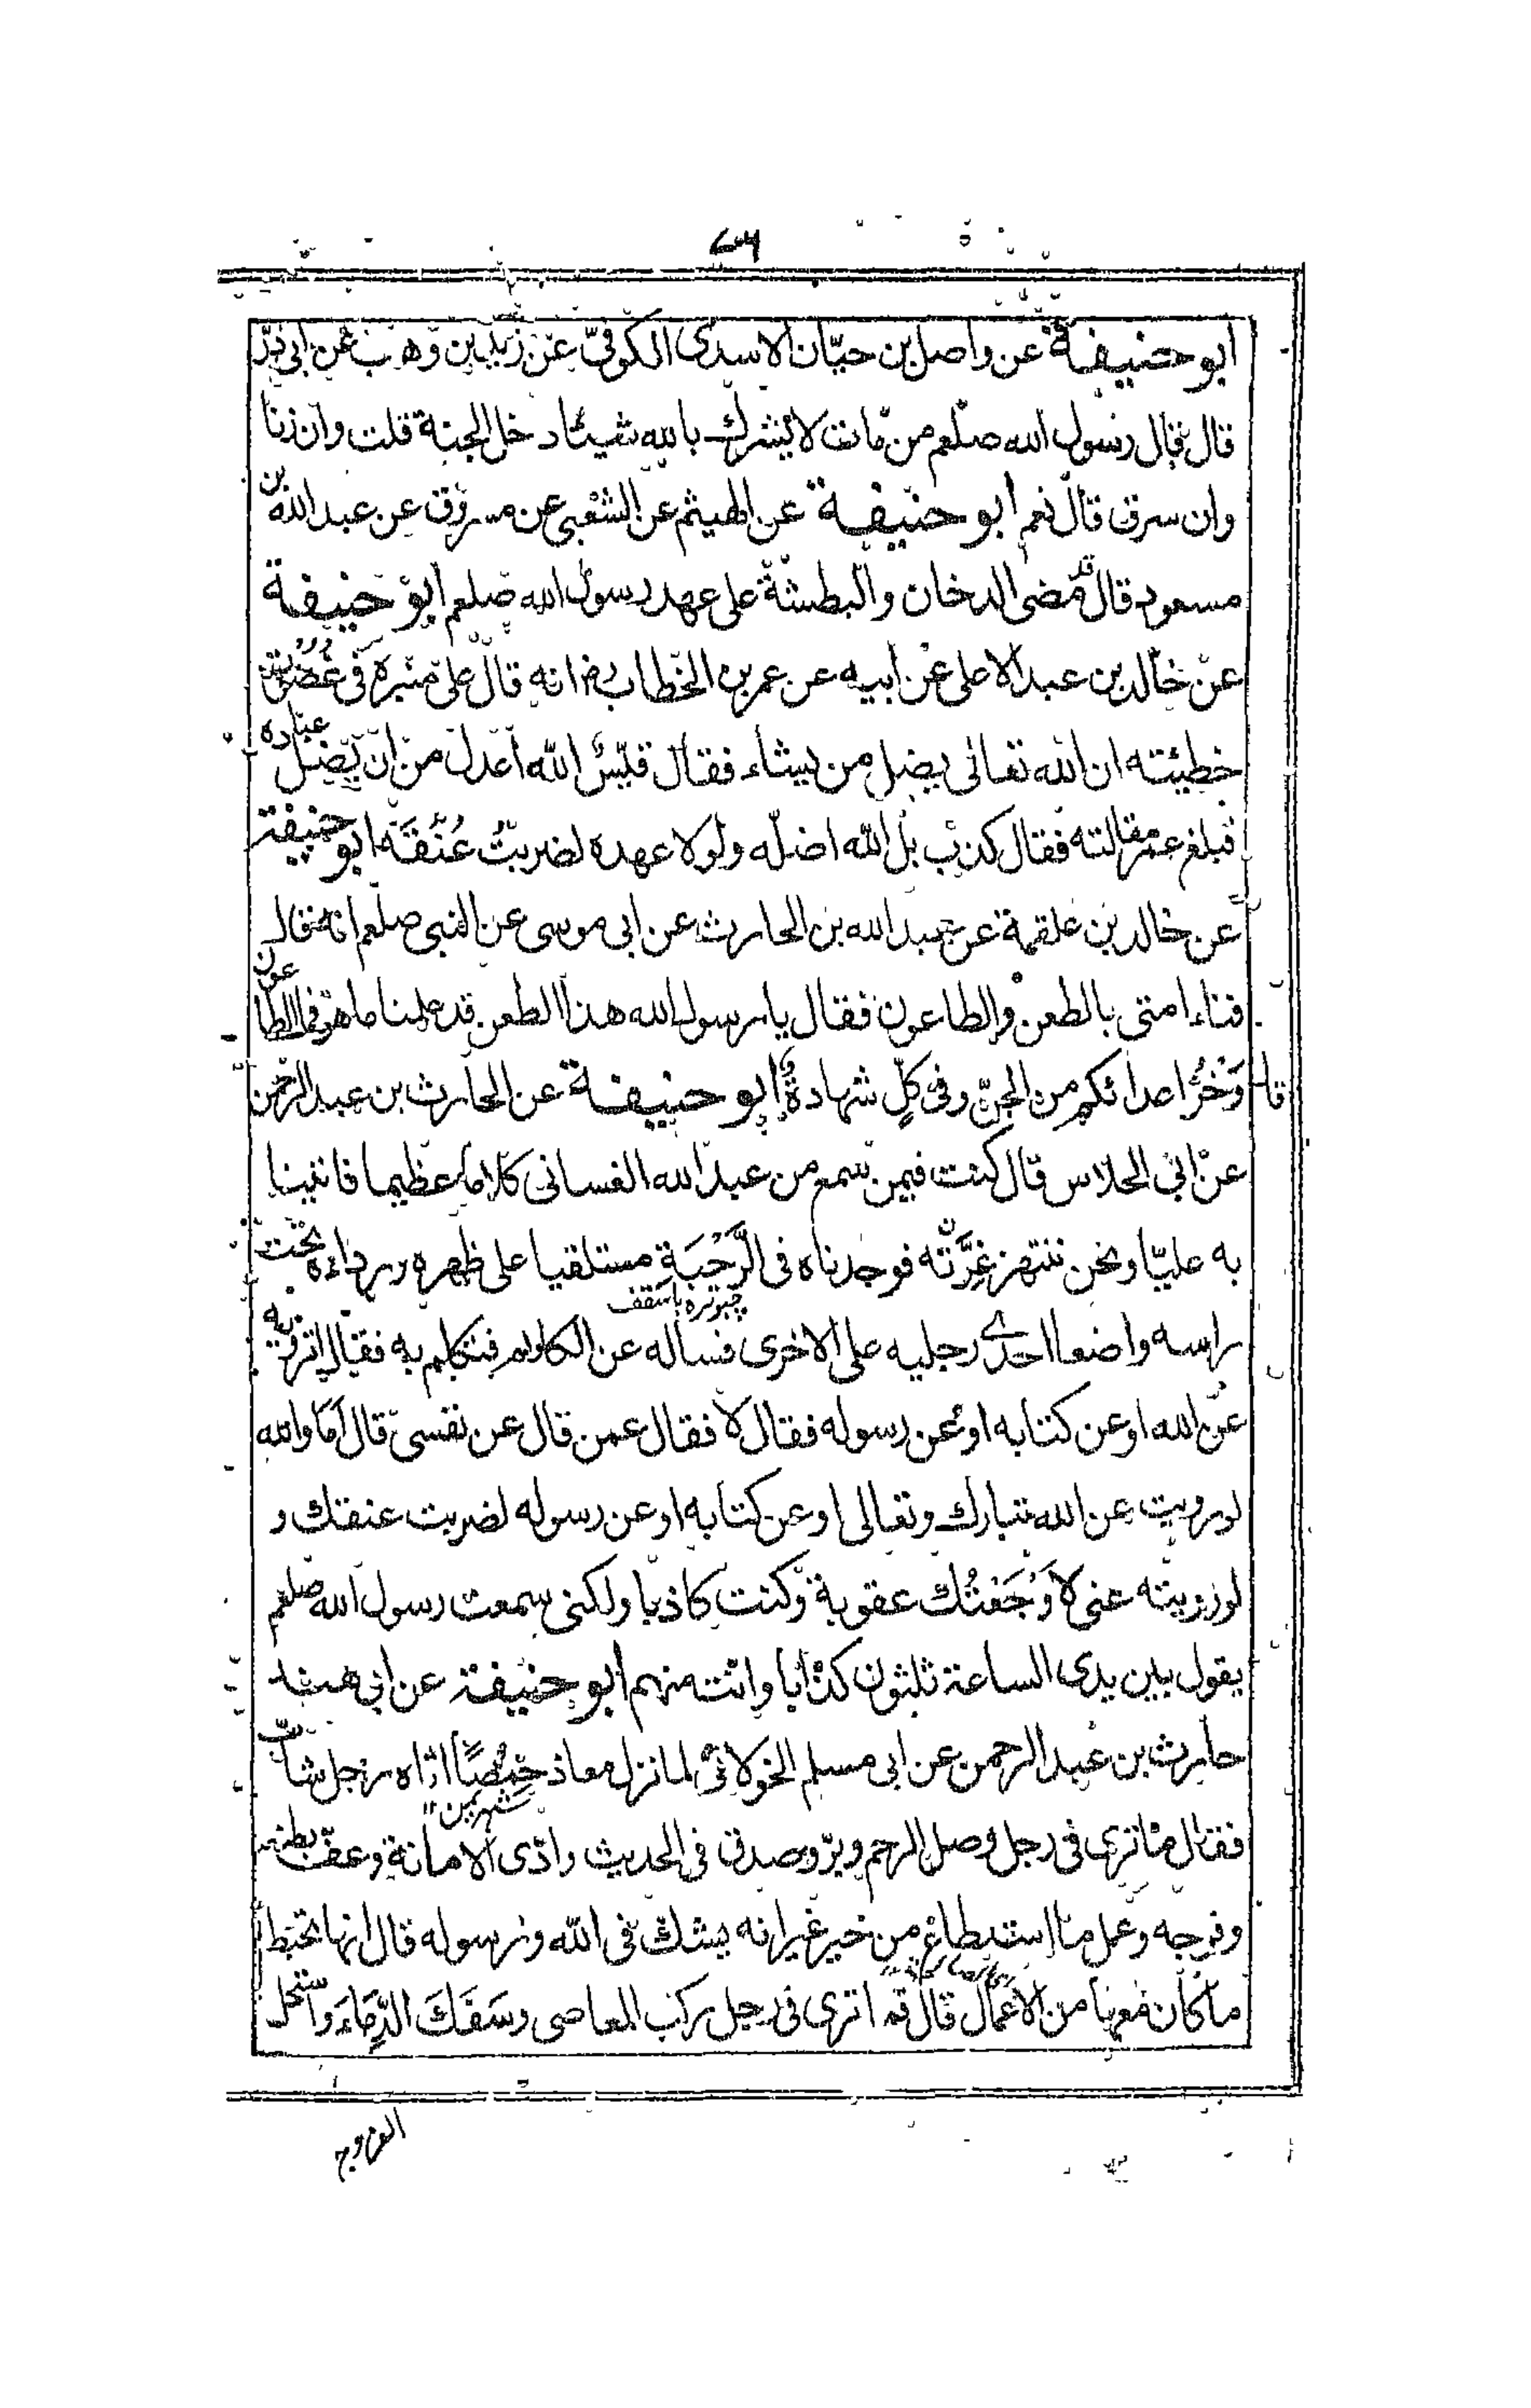 ابو حنيفة عن واصل بن حيّان الاسدى الكوفىّ عن زيد بن وهب عن ابى ذرّ
قال قال رسول الله صلعم من مات لا يشرك بالله شيئا دخل الجنة قلت وان زنا
وان سرق قال نعم ابو حنيفة عن الهيثم عن الشعبى عن مسروق عن عبد الله بن
مسعود قال قد مضى الدخان والبطشة على عهد رسول الله صلعم ابو حنيفة
عن خالد بن عبد الاعلى عن ابيه عن عمر بن الخطاب رض انه قال على منبره فى
خطبته ان الله تعالى يضل من يشاء فقال قسّ الله اعدل من ان يضلّ عباده
فبلغ عمر مقالته فقال كذب بل الله اضلّه ولولا عهده لضربتُ عُنُقَه ابو حنيفة
عن خالد بن علقمة عن عبد الله بن الحارث عن ابى موسى عن النبى صلعم انه قال
فناء امتى بالطعن والطاعون فقال يا رسول الله هذا الطعن قد علمنا ما هو فما الطاعون
قال وَخْزُ اعدائكم من الجنّ وفى كلٍّ شهادةٌ ابو حنيفة عن الحارث بن عبد الرحمن
عن ابى الجلاس قال كنت فيمن سمع من عبد الله الغسانى كلاما عظيما فاتينا
به عليّا ونحن ننتهز غِرَّتَه فوجدناه فى الرَّحْبَةِ مستلقيا على ظهره ورداءه تحت
چبوتره باسقف
راسه واضعا احدے رجليه على الاخرى فساله عن الكلام فتكلم به فقال اترويه
عن الله او عن كتابه او عن رسوله فقال لا فقال عمن قال عن نفسى قال اَمَا والله
لو رويت عن الله تبارك وتعالى او عن كتابه او عن رسوله لضربت عنقك و
لو رويته عنى لاَوْجَعْتُك عقوبة وكنت كاذبا ولكنى سمعت رسول الله صلعم
يقول بين يدى الساعة ثلثون كذّابا وانت منهم ابو حنيفة عن ابى هند
حارث بن عبد الرحمن عن ابى مسلم الخولانى لما نزل معاذ حِمْصًا اتاه رجل شابّ
فقال ما ترى فى رجل وصل الرحم وبرّ وصدق فى الحديث وادّى الامانة وعفّ بطنه
وفرجه وعمل ما استطاع من خير غير انه يشك فى الله ورسوله قال انها تحبط
ما كان معها من الاعمال قال فما ترى فى رجل ركب المعاصى وسَفَكَ الدِّمَاءَ واستحل
الفروج